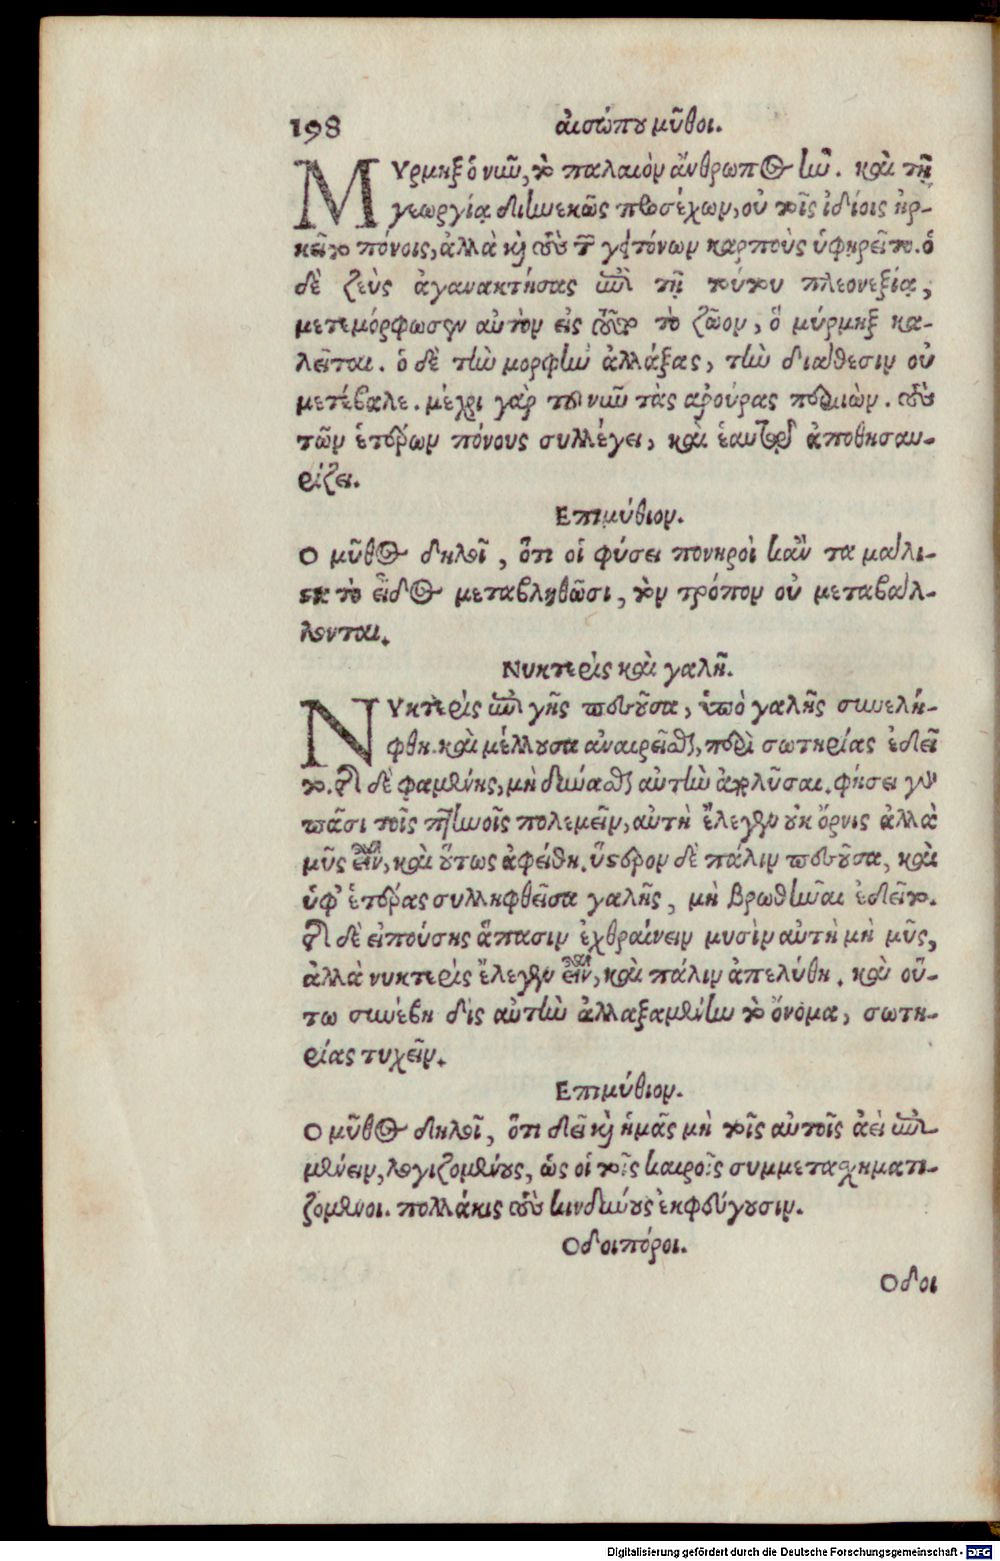 198 αἰσώπου μῦθοι.
ΜΥρμηξ ὁ νῦν, τὸ παλαιὸν ἄνθρωπος ἦν. καὶ τῇ
γεωργίᾳ διηνεκῶς προσέχων, οὐ τοῖς ἰδίοις ἠρ-
κεῖτο πόνοις, ἀλλὰ καὶ τοὺς τῶν γειτόνων καρποὺς ὑφῃρεῖτο. ὁ
δὲ ζεὺς ἀγανακτήσας ἐπὶ τῇ τούτου πλεονεξίᾳ,
μετεμόρφωσεν αὐτὸν εἰς τοῦτο τὸ ζῶον, ὃ μύρμηξ κα-
λεῖται. ὁ δὲ τὴν μορφὴν ἀλλάξας, τὴν διάθεσιν οὐ
μετέβαλε. μέχρι γὰρ τοῦ νῦν τὰς ἀρούρας περιϊὼν. τοὺς
τῶν ἑτέρων πόνους συλλέγει, καὶ ἑαυτῷ ἀποθησαυ-
ρίζει.
Επιμύθιον.
Ο μῦθος δηλοῖ, ὅτι οἱ φύσει πονηροὶ κἂν τὰ μάλι-
στα τὸ εἶδος μεταβληθῶσι, τὸν τρόπον οὐ μεταβάλ-
λονται.
Νυκτερὶς καὶ γαλῆ.
ΝΥκτερὶς ἐπὶ γῆς πεσοῦσα, ὑπὸ γαλῆς συνελή-
φθη. καὶ μέλλουσα ἀναιρεῖσθαι, περὶ σωτηρίας ἐδεῖ
το. τῆς δὲ φαμένης, μὴ δύνασθαι αὐτὴν ἀπολῦσαι. φύσει γὰρ
πᾶσι τοῖς πτηνοῖς πολεμεῖν, αὐτὴ ἔλεγεν οὐκ ὄρνις ἀλλὰ
μῦς εἶναι, καὶ οὕτως ἀφείθη. ὕστερον δὲ πάλιν πεσοῦσα, καὶ
ὑφ' ἑτέρας συλληφθεῖσα γαλῆς, μὴ βρωθῆναι ἐδεῖτο.
τῆς δὲ εἰπούσης ἅπασιν ἐχθραίνειν μυσὶν αὐτὴ μὴ μῦς,
ἀλλὰ νυκτερὶς ἔλεγεν εἶναι, καὶ πάλιν ἀπελύθη. καὶ οὕ-
τω συνέβη δὶς αὐτὴν ἀλλαξαμένην τὸ ὄνομα, σωτη-
ρίας τυχεῖν.
Επιμύθιον.
Ο μῦθος δηλοῖ, ὅτι δεῖ καὶ ἡμᾶς μὴ τοῖς αὐτοῖς ἀεὶ ἐπι-
μένειν, λογιζομένους, ὡς οἱ τοῖς καιροῖς συμμετασχηματι-
ζόμενοι. πολλάκις τοὺς κινδύνους ἐκφεύγουσιν.
Οδοιπόροι.
Οδοι
Digitalisierung gefördert durch die Deutsche Forschungsgemeinschaft - DFG